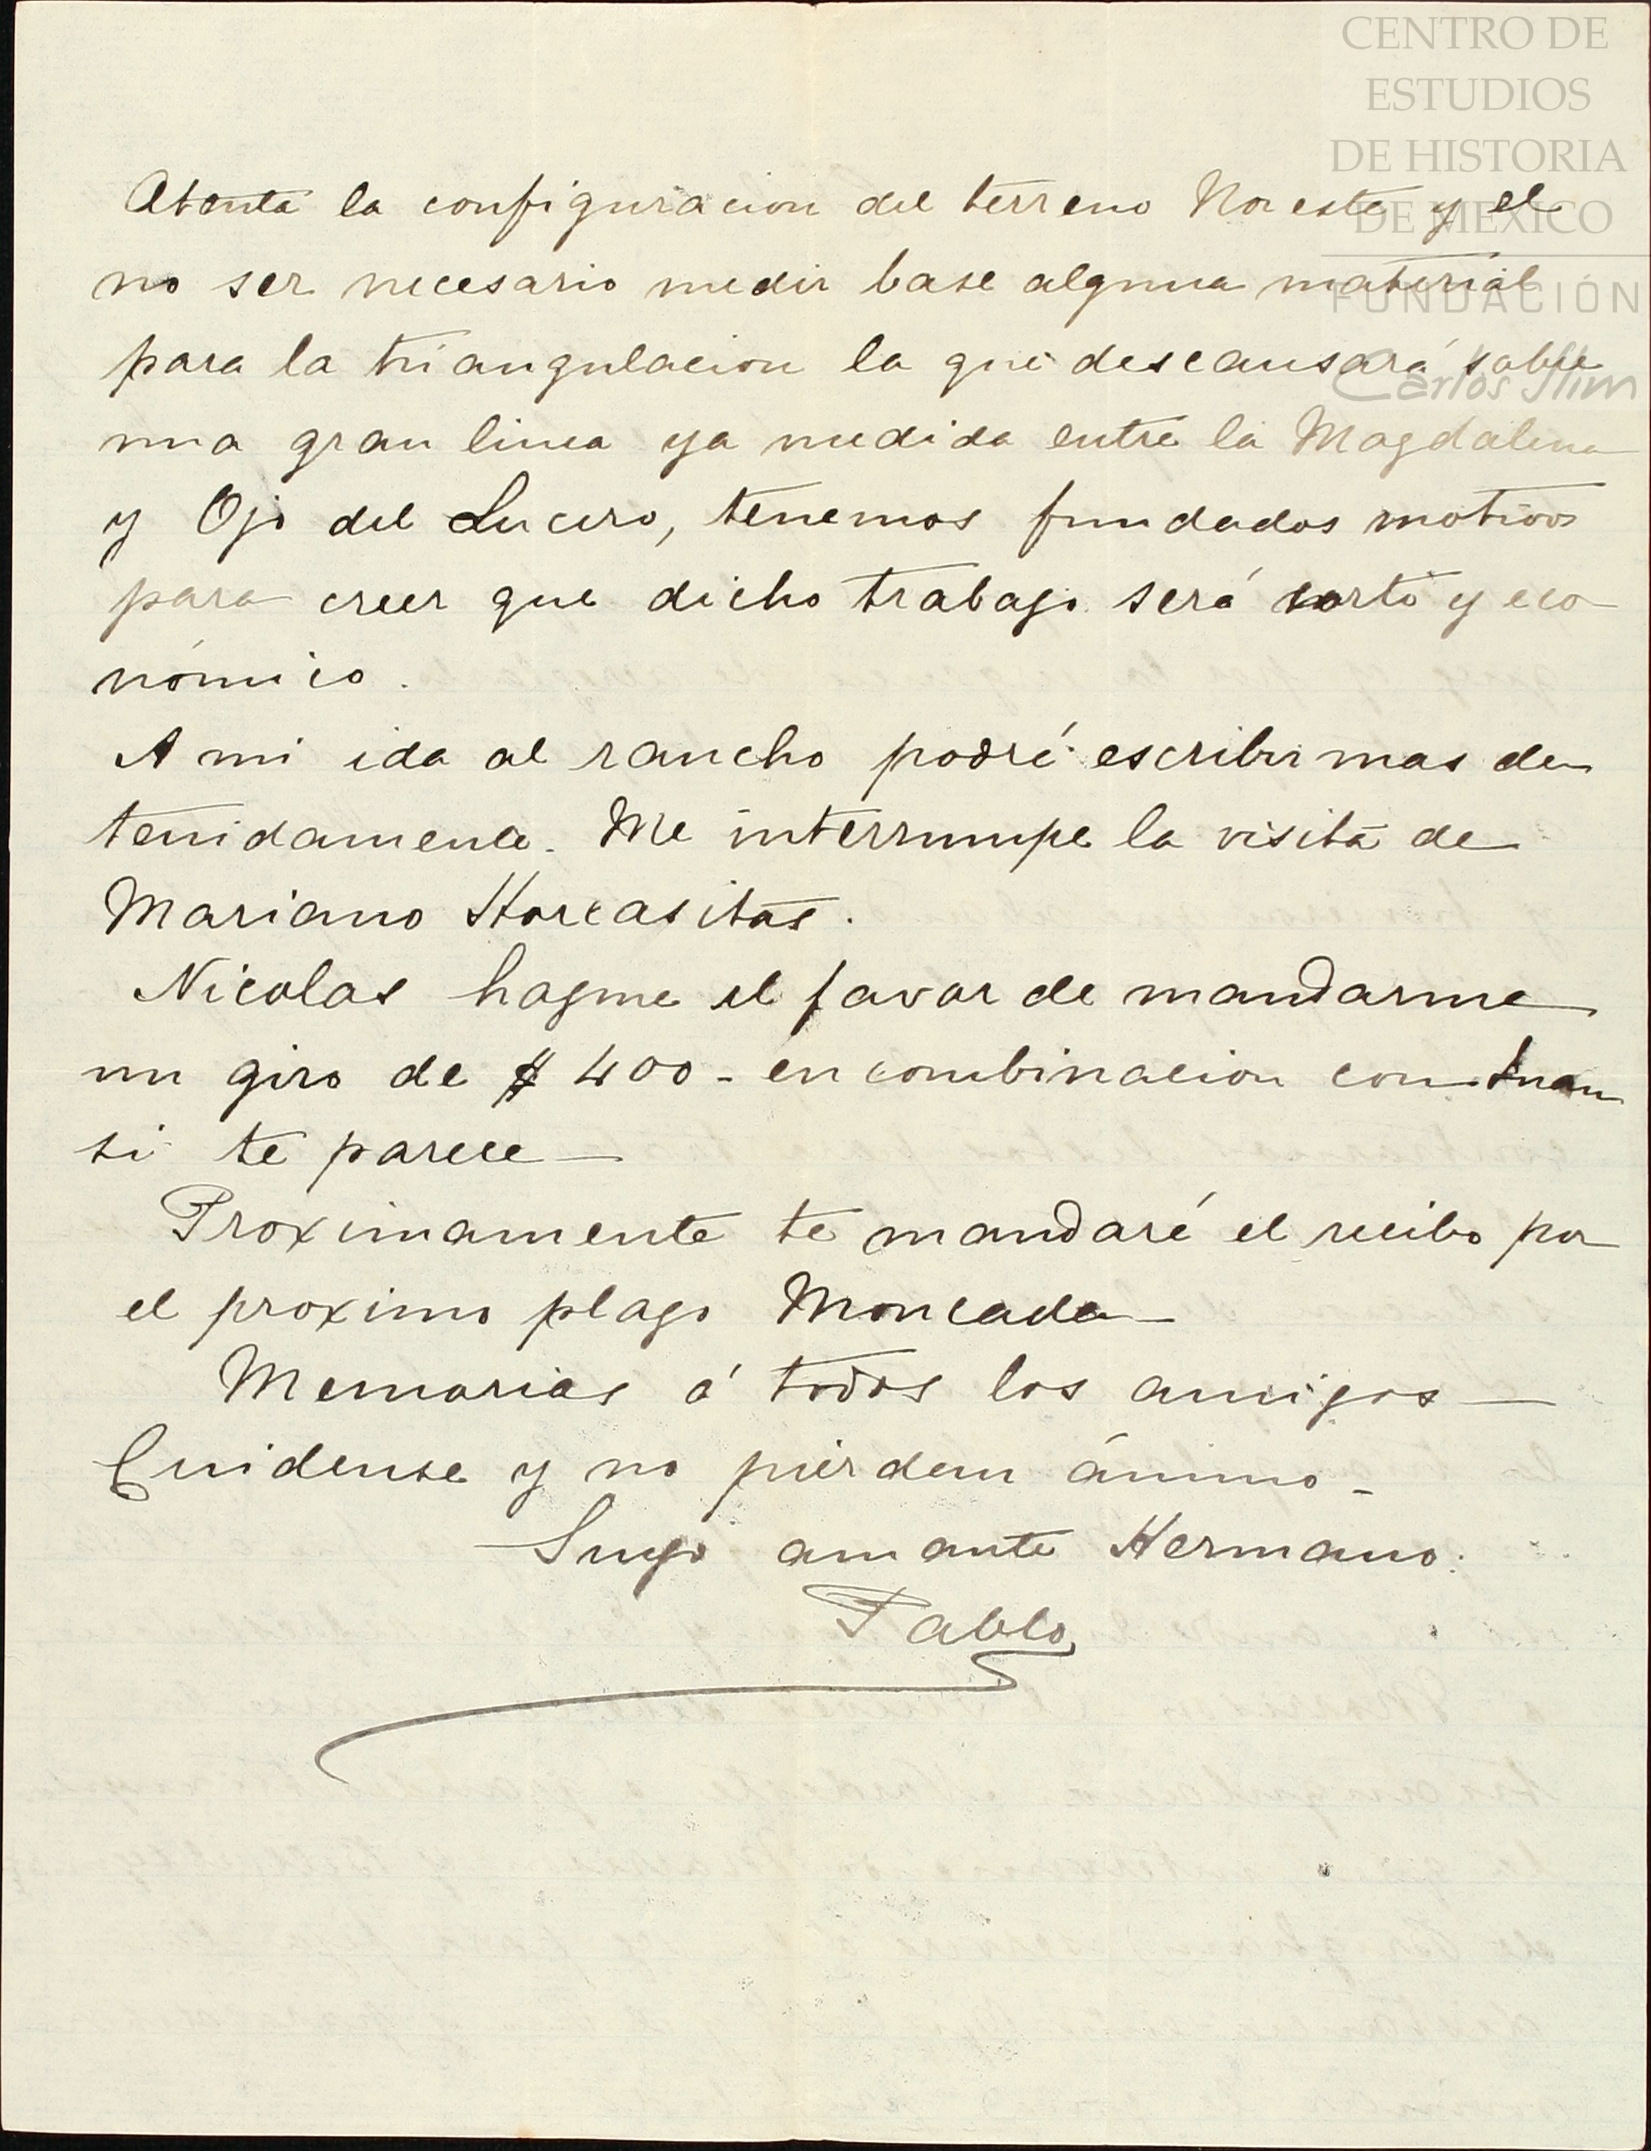 CENTRO DE
ESTUDIOS
DE HISTORIA
DE MEXICO
FUNDACIÓN
Carlos Slim
Atenta la configuracion del terreno Noreste y el
no ser necesario medir base alguna material
para la triangulacion la que descansará sobre
una gran linea ya medida entre la Magdalena
y Ojo del Lucero, tenemos fundados motivos
para creer que dicho trabajo será corto y eco
nómico.
A mi ida al rancho podré escribir mas de
tenidamente. Me interrumpe la visita de
Mariano Horcasitas.
Nicolas hagme el favor de mandarme
un giro de $400 - en combinacion con Juan
si te parece —
Proximamente te mandaré el recibo por
el proximo plago Moncada —
Memorias á todos los amigos —
Cuidense y no pierdan ánimo -
Suyo amante Hermano.
Pablo